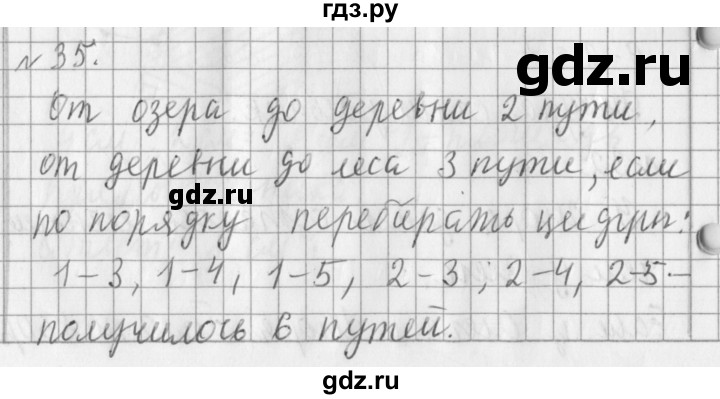 гдз.ру
№ 35.
gdz.ru
От озера до деревни 2 пути,
от деревни до леса 3 пути, если
gdz.ru
по порядку перебирать цифры:
1-3, 1-4, 1-5, 2-3; 2-4, 2-5 -
получилось 6 путей.
gdz.ru